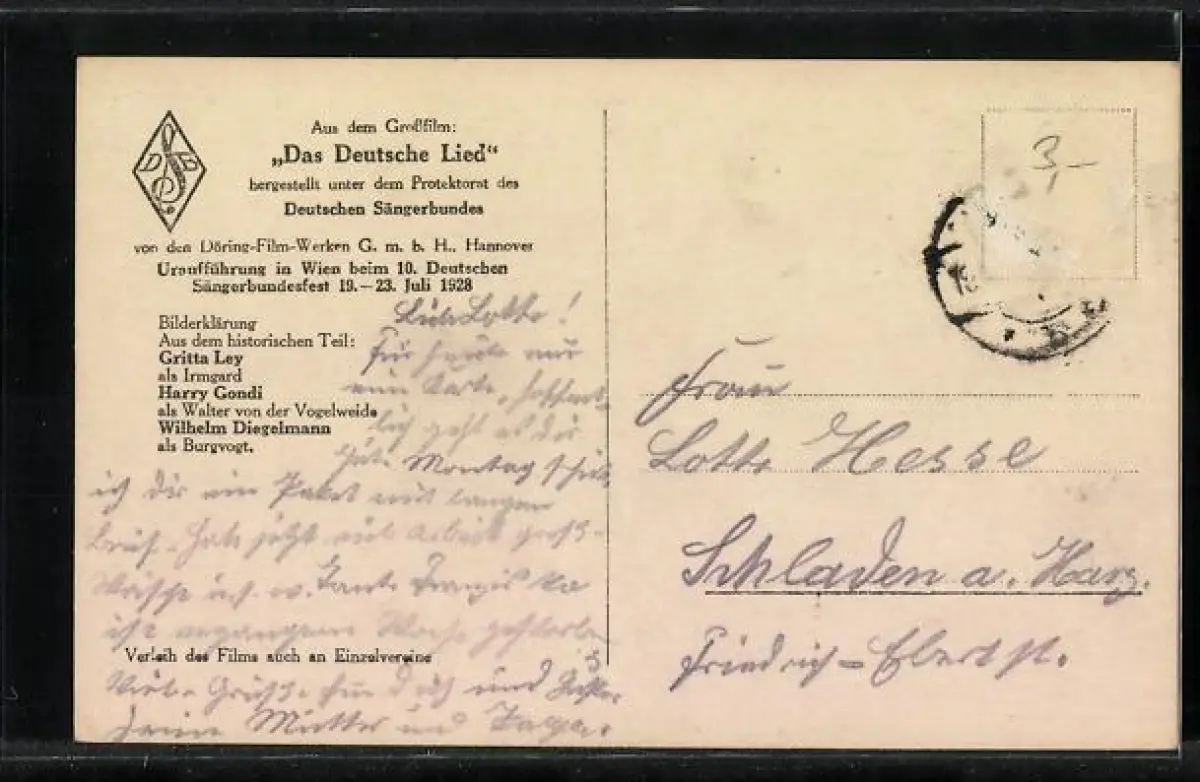 D S B
Aus dem Großfilm:
„Das Deutsche Lied“
hergestellt unter dem Protektorat des
Deutschen Sängerbundes
von den Döring-Film-Werken G. m. b. H., Hannover
Uraufführung in Wien beim 10. Deutschen
Sängerbundesfest 19.—23. Juli 1928
Bilderklärung
Aus dem historischen Teil:
Gritta Ley
als Irmgard
Harry Gondi
als Walter von der Vogelweide
Wilhelm Diegelmann
als Burgvogt.
Liebe Lotte!
Für heute nur
eine Karte, hoffent-
lich geht es dir
gut. Montag schick
ich dir ein Paket mit langen
Brief. Hab jetzt viel Arbeit große
Wäsche u.s.w. Tante
ist vergangene Woche gestorben
Verleih des Films auch an Einzelvereine
Viele Grüße für dich und
deine Mutter und
3,-
Frau
Lotte Hesse
Schladen a. Harz.
Friedrich-Ebertst.